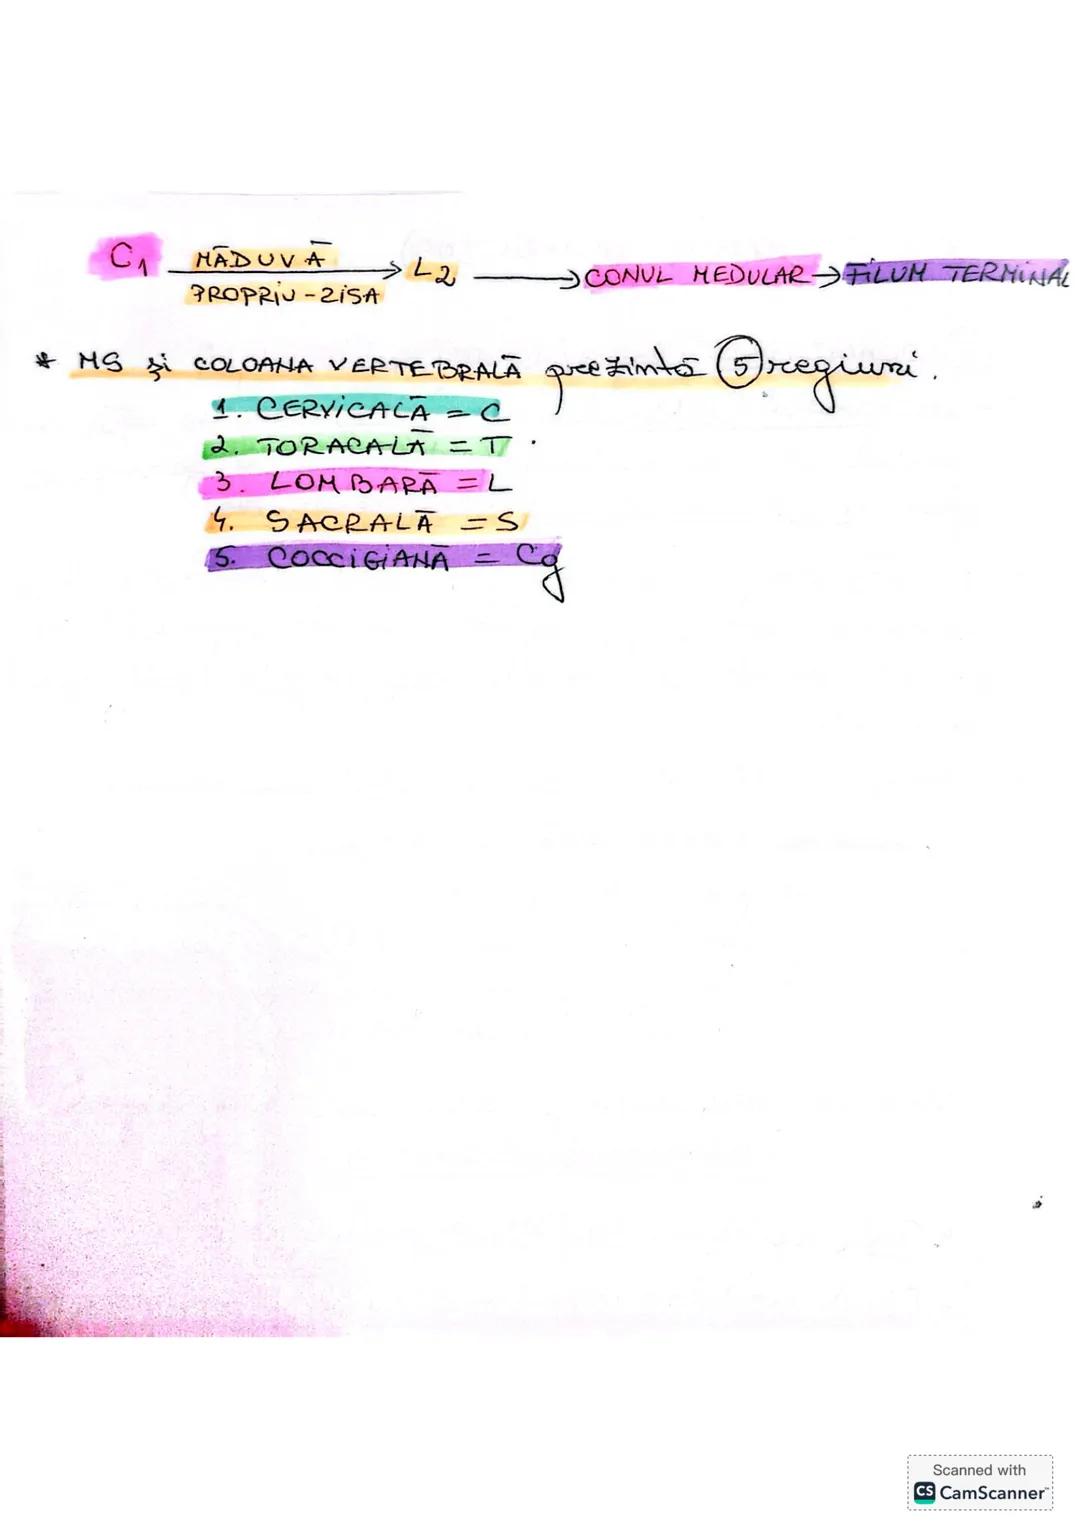 C1 MĂDUVĂ PROPRIU-ZISĂ → L2 → CONUL MEDULAR → FILUM TERMINAL
* MS și COLOANA VERTEBRALĂ prezintă 5 regiuni.
1. CERVICALĂ = C
2. TORACALĂ = T
3. LOMBARĂ = L
4. SACRALĂ = S
5. COCCIGIANĂ = Cg
Scanned with
CS CamScanner